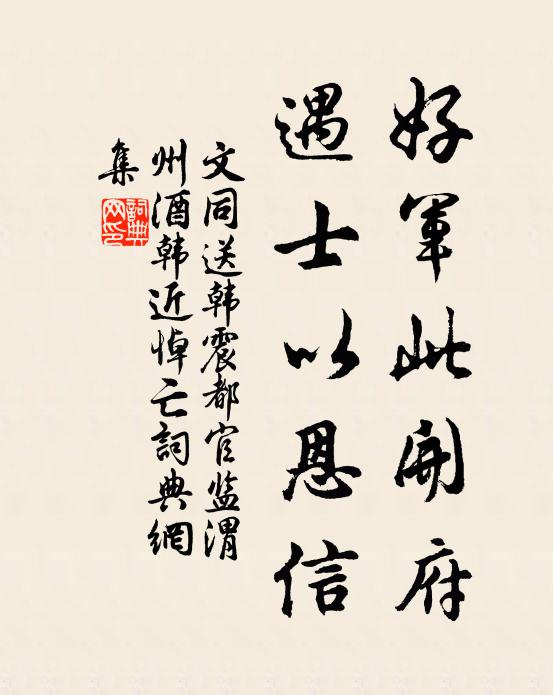 好軍此開府
遇士以恩信
文同送韩震都官监渭
州酒韩近悼亡詞典網
集
詞典
网印